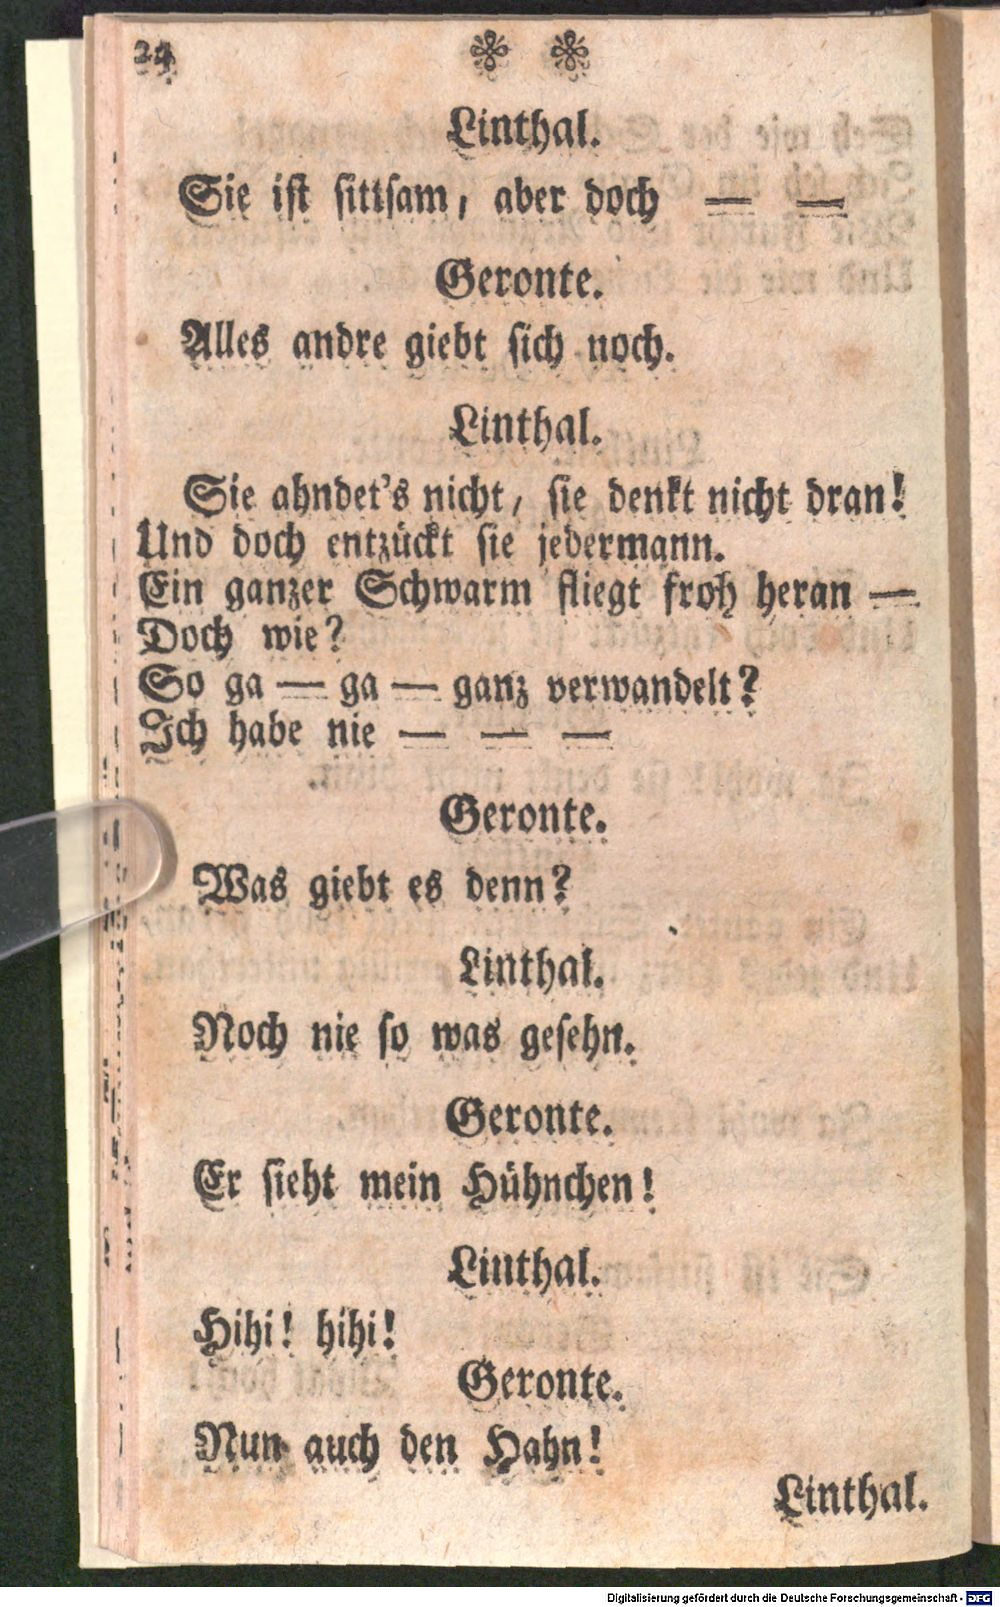 24
Linthal.
Sie ist sittsam, aber doch — —
Geronte.
Alles andre giebt sich noch.
Linthal.
Sie ahndet's nicht, sie denkt nicht dran!
Und doch entzückt sie jedermann.
Ein ganzer Schwarm fliegt froh heran —
Doch wie?
So ga — ga — ganz verwandelt?
Ich habe nie — — —
Geronte.
Was giebt es denn?
Linthal.
Noch nie so was gesehn.
Geronte.
Er sieht mein Hühnchen!
Linthal.
Hihi! hihi!
Geronte.
Nun auch den Hahn!
Linthal.
Digitalisierung gefördert durch die Deutsche Forschungsgemeinschaft - DFG